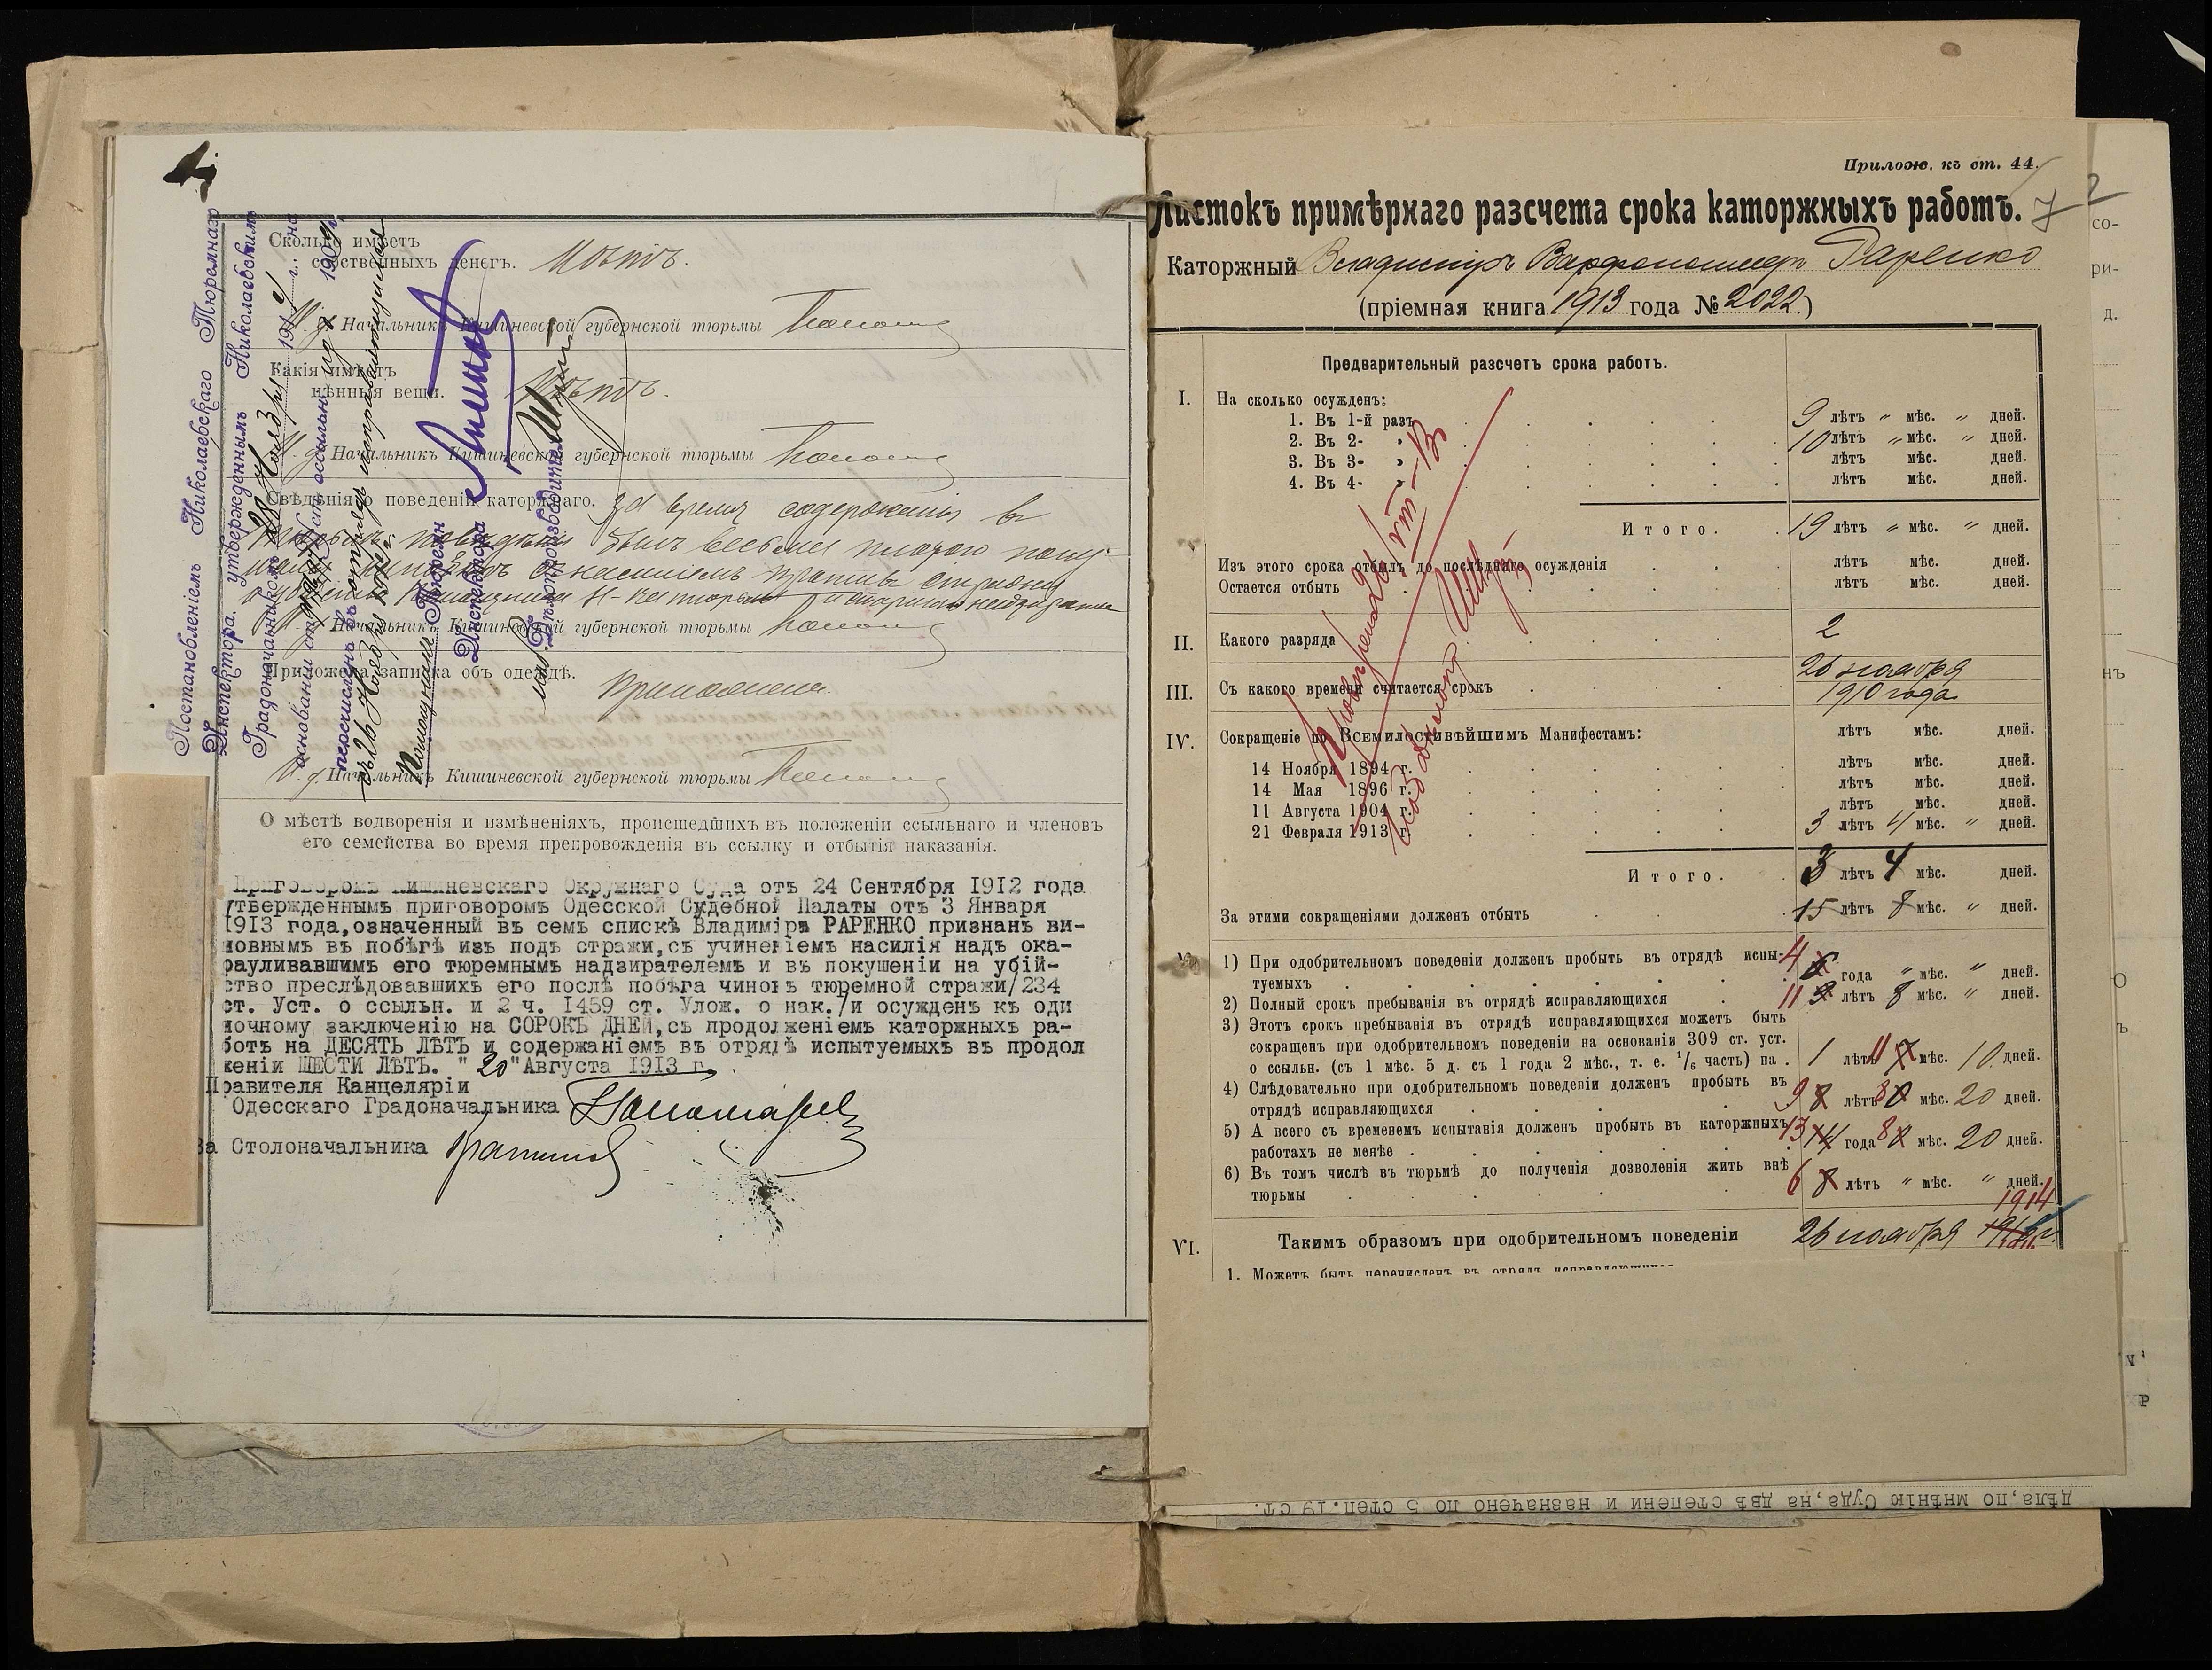 Сколько имѣетъ
собственныхъ денегъ. Нѣтъ.
И. д. Начальникъ Кишиневской губернской тюрьмы
Какія имѣетъ
цѣнныя вещи. Нѣтъ.
И. д. Начальникъ Кишиневской губернской тюрьмы
Свѣдѣнія о поведеніи каторжнаго. За время содержанія въ
тюрьмѣ поведенія былъ весьма плохого
Начальникъ Кишиневской губернской тюрьмы
Приложена записка объ одеждѣ. Приложена.
И. д. Начальникъ Кишиневской губернской тюрьмы
О мѣстѣ водворенія и измѣненіяхъ, происшедшихъ въ положеніи ссыльнаго и членовъ
его семейства во время препровожденія въ ссылку и отбытія наказанія.
Приговоромъ Кишиневскаго Окружнаго Суда отъ 24 Сентября 1912 года
утвержденнымъ приговоромъ Одесской Судебной Палаты отъ 3 Января
1913 года,означенный въ семъ спискѣ Владиміръ РАРЕНКО признанъ ви-
новнымъ въ побѣгѣ изъ подъ стражи,съ учиненіемъ насилія надъ ока-
рауливавшимъ его тюремнымъ надзирателемъ и въ покушеніи на убій-
ство преслѣдовавшихъ его послѣ побѣга чиновъ тюремной стражи/234
ст. Уст. о ссыльн. и 2 ч. 1459 ст. Улож. о нак./и осужденъ къ оди
ночному заключенію на СОРОКЪ ДНЕЙ,съ продолженіемъ каторжныхъ ра-
ботъ на ДЕСЯТЬ ЛѢТЪ и содержаніемъ въ отрядѣ испытуемыхъ въ продол
женіи ШЕСТИ ЛѢТЪ. "20"Августа 1913 г.
Правителя Канцеляріи
Одесскаго Градоначальника
За Столоначальника
Постановленіемъ Николаевскаго Тюремнаго
Инспектора, утвержденнымъ Николаевскимъ
Градоначальникомъ 20 Ноября 1914 г., на
основаніи ст. уст. о ссыльн. изд. 1909 г.
перечисленъ въ отрядъ исправляющихся
съ 26 Ноября
Помощникъ Тюремн
Инспектора
Дѣлопроизводитель
Прилож. къ ст. 44.
7
2
Листокъ примѣрнаго разсчета срока каторжныхъ работъ.
Каторжный Владиміръ Варфоломеевъ Раренко
(пріемная книга 1913 года № 2022.)
Предварительный разсчетъ срока работъ.
I. На сколько осужденъ:
1. Въ 1-й разъ 9 лѣтъ " мѣс. " дней.
2. Въ 2- " 10 лѣтъ " мѣс. " дней.
3. Въ 3- " лѣтъ мѣс. дней.
4. Въ 4- " лѣтъ мѣс. дней.
Итого. 19 лѣтъ " мѣс. " дней.
Изъ этого срока отбылъ до послѣдняго осужденія лѣтъ мѣс. дней.
Остается отбыть лѣтъ мѣс. дней.
II. Какого разряда 2
III. Съ какого времени считается срокъ 26 ноября
1910 года
IV. Сокращеніе по Всемилостивѣйшимъ Манифестамъ: лѣтъ мѣс. дней.
14 Ноября 1894 г. лѣтъ мѣс. дней.
14 Мая 1896 г. лѣтъ мѣс. дней.
11 Августа 1904 г. лѣтъ мѣс. дней.
21 Февраля 1913 г. 3 лѣтъ 4 мѣс. " дней.
Итого. 3 лѣтъ 4 мѣс. дней.
За этими сокращеніями долженъ отбыть 15 лѣтъ 8 мѣс. " дней.
V. 1) При одобрительномъ поведеніи долженъ пробыть въ отрядѣ испы-
туемыхъ 4 6 года " мѣс. " дней.
2) Полный срокъ пребыванія въ отрядѣ исправляющихся 11 9 лѣтъ 8 мѣс. " дней.
3) Этотъ срокъ пребыванія въ отрядѣ исправляющихся можетъ быть
сокращенъ при одобрительномъ поведеніи на основаніи 309 ст. уст.
о ссыльн. (съ 1 мѣс. 5 д. съ 1 года 2 мѣс., т. е. 1/6 часть) на. 1 лѣтъ 11 7 мѣс. 10 дней.
4) Слѣдовательно при одобрительномъ поведеніи долженъ пробыть въ
отрядѣ исправляющихся 9 8 лѣтъ 8 0 мѣс. 20 дней.
5) А всего съ временемъ испытанія долженъ пробыть въ каторжныхъ
работахъ не менѣе 13 14 года 8 0 мѣс. 20 дней.
6) Въ томъ числѣ въ тюрьмѣ до полученія дозволенія жить внѣ
тюрьмы 6 8 лѣтъ " мѣс. " дней.
1914
VI. Такимъ образомъ при одобрительномъ поведеніи 26 ноября 1916 г.
1. Можетъ быть перечисленъ въ отрядъ исправляющихся
дѣла,по мнѣнію Суда,на двѣ степени и назначено по 5 степ.19 ст.
со-
ри-
д.
нъ
О
ъ